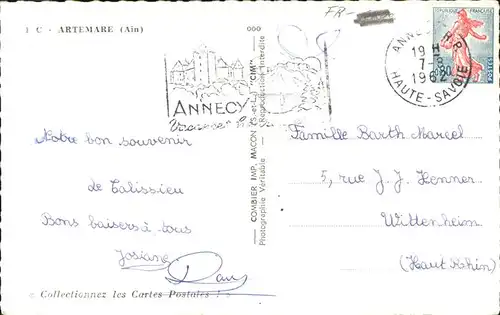 1 C - ARTEMARE (Ain)
FR-
ANNECY R.P.
19 H
7-8
1962
HAUTE-SAVOIE
REPUBLIQUE FRANÇAISE
0,20
POSTES
ANNECY
COMBIER IMP. MACON (S.-et-L.) "CIM"
Photographie Véritable - Reproduction Interdite
Notre bon souvenir
de Talissieu
Bons baisers à tous
Josiane
Famille Barth Marcel
5, rue J. J. Henner
Wittenheim
(Haut Rhin)
Collectionnez les Cartes Postales !